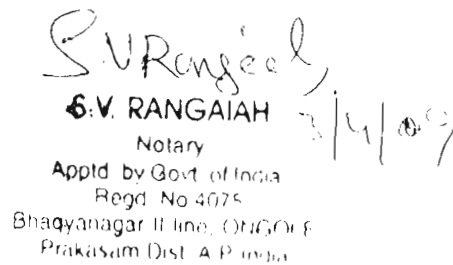 S.V Rangaiah,
S.V. RANGAIAH 3/4/09
Notary
Apptd by Govt of India
Regd No 4075
Bhagyanagar II line, ONGOLE
Prakasam Dist A.P. India